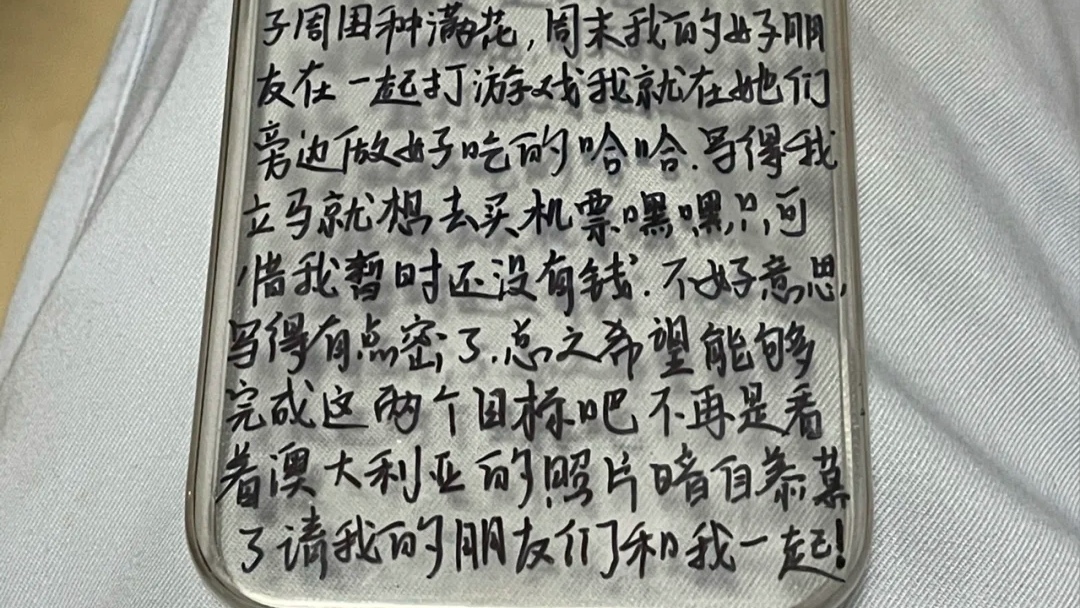 子周围种满花，周末我的好朋
友在一起打游戏我就在她们
旁边做好吃的哈哈.写得我
立马就想去买机票嘿嘿，可
惜我暂时还没有钱.不好意思
写得有点密了.总之希望能够
完成这两个目标吧不再是看
着澳大利亚的照片暗自慕
了请我的朋友们和我一起!